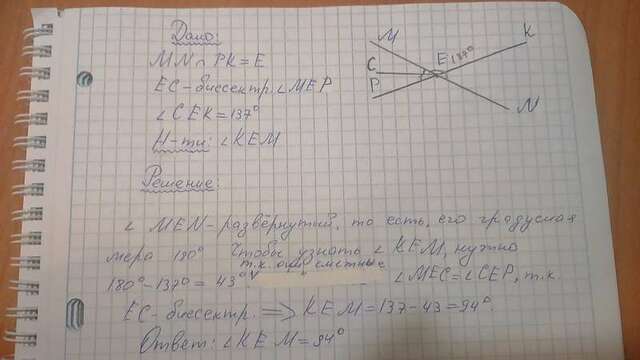 Дано:
MN ∩ PK = E
EC - биссектр. ∠MEP
∠CEK = 137°
Н-ти: ∠KEM
M
K
C
E
137°
P
N
Решение:
∠ MEN - развёрнутый, то есть, его градусная
мера 180° Чтобы узнать ∠ KEM, нужно
т.к. они смежные
180° - 137° = 43° ∠MEC = ∠CEP, т.к.
EC - биссектр. ⟹ KEM = 137 - 43 = 94°.
Ответ: ∠KEM = 94°